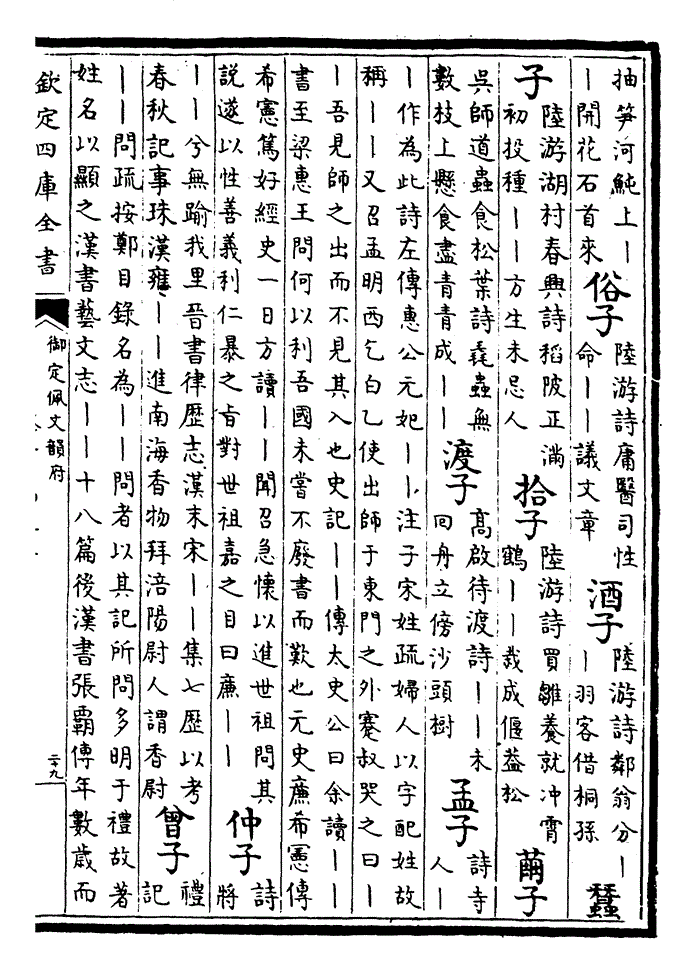 抽笋河魨上丨丨開花石首來俗子陸游詩庸醫司性命丨丨議文章酒子陸游詩鄰翁分丨丨羽客借桐孫蠶
子陸游湖村春興詩稻陂正滿初投種丨丨方生未忌人拾子陸游詩買雛養就冲霄鶴丨丨栽成偃葢松繭子
吳師道蟲食松葉詩毳蟲無數枝上懸食盡青青成丨丨渡子高啟待渡詩丨丨未回舟立傍沙頭樹孟子詩寺人丨
丨作為此詩左傳惠公元妃丨丨注子宋姓疏婦人以字配姓故
稱丨丨又召孟明西乞白乙使出師于東門之外蹇叔哭之曰丨
丨吾見師之出而不見其入也史記丨丨傳太史公曰余讀丨丨
書至梁惠王問何以利吾國未嘗不廢書而歎也元史廉希憲傳
希憲篤好經史一日方讀丨丨聞召急懷以進世祖問其說遂以性善義利仁暴之旨對世祖嘉之目曰廉丨丨仲子詩將
丨丨兮無踰我里晉書律歷志漢末宋丨丨集七歷以考春秋記事珠漢雍丨丨進南海香物拜涪陽尉人謂香尉曾子禮記
丨丨問疏按鄭目錄名為丨丨問者以其記所問多明于禮故著
姓名以顯之漢書藝文志丨丨十八篇後漢書張霸傳年數歲而
欽定四庫全書
御定佩文韻府
二十九